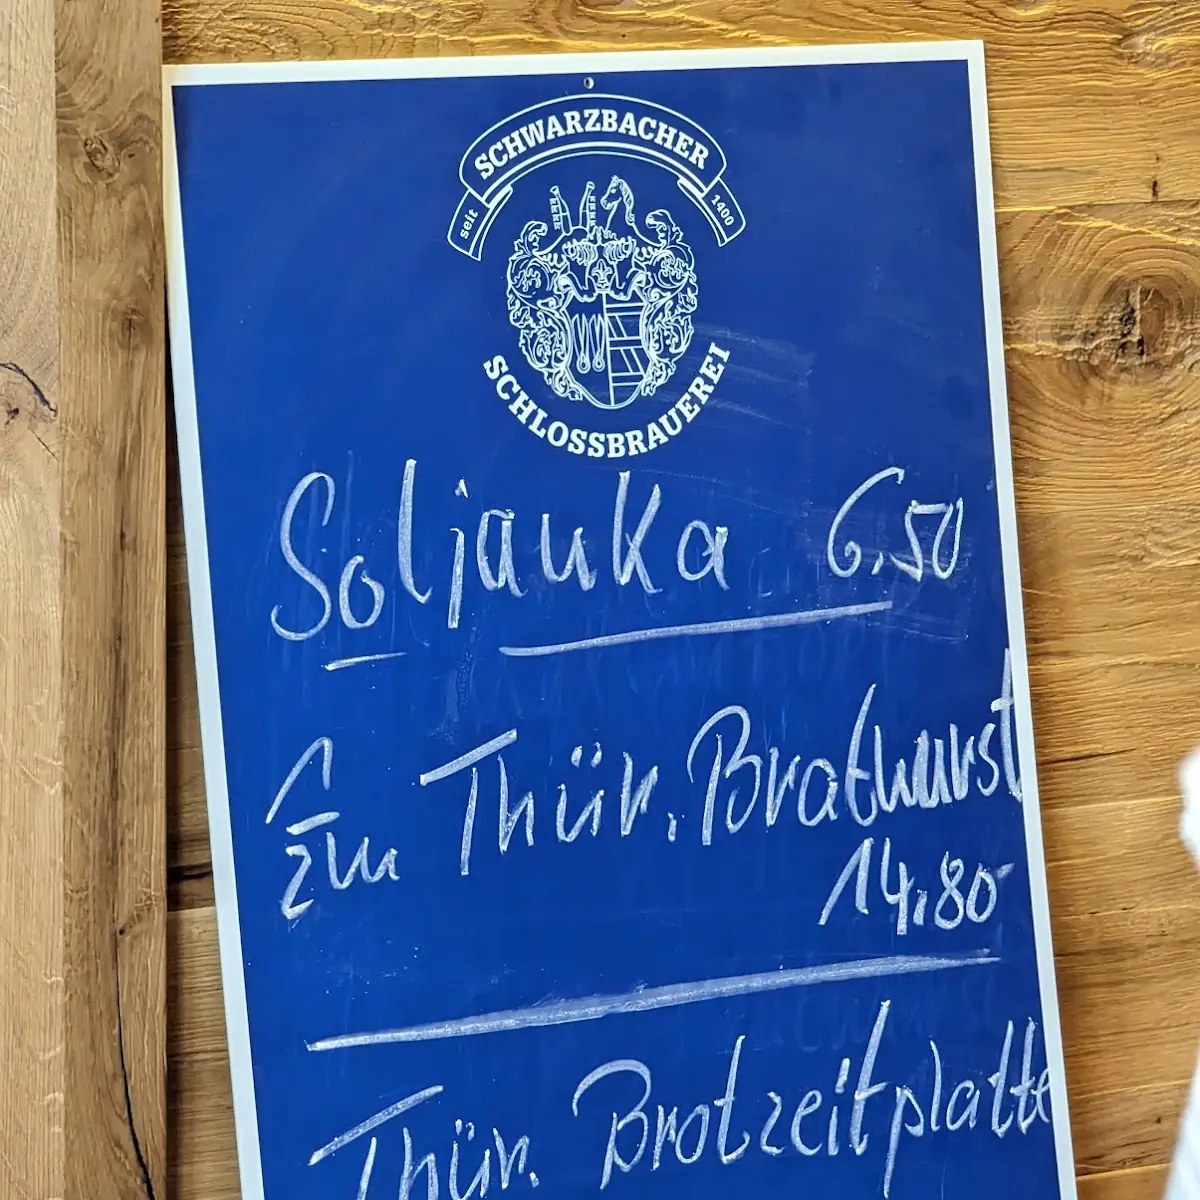 SCHWARZBACHER
seit 1400
SCHLOSSBRAUEREI
Soljanka 6,50
1m Thür. Bratwurst
14,80
Thür. Brotzeitplatte